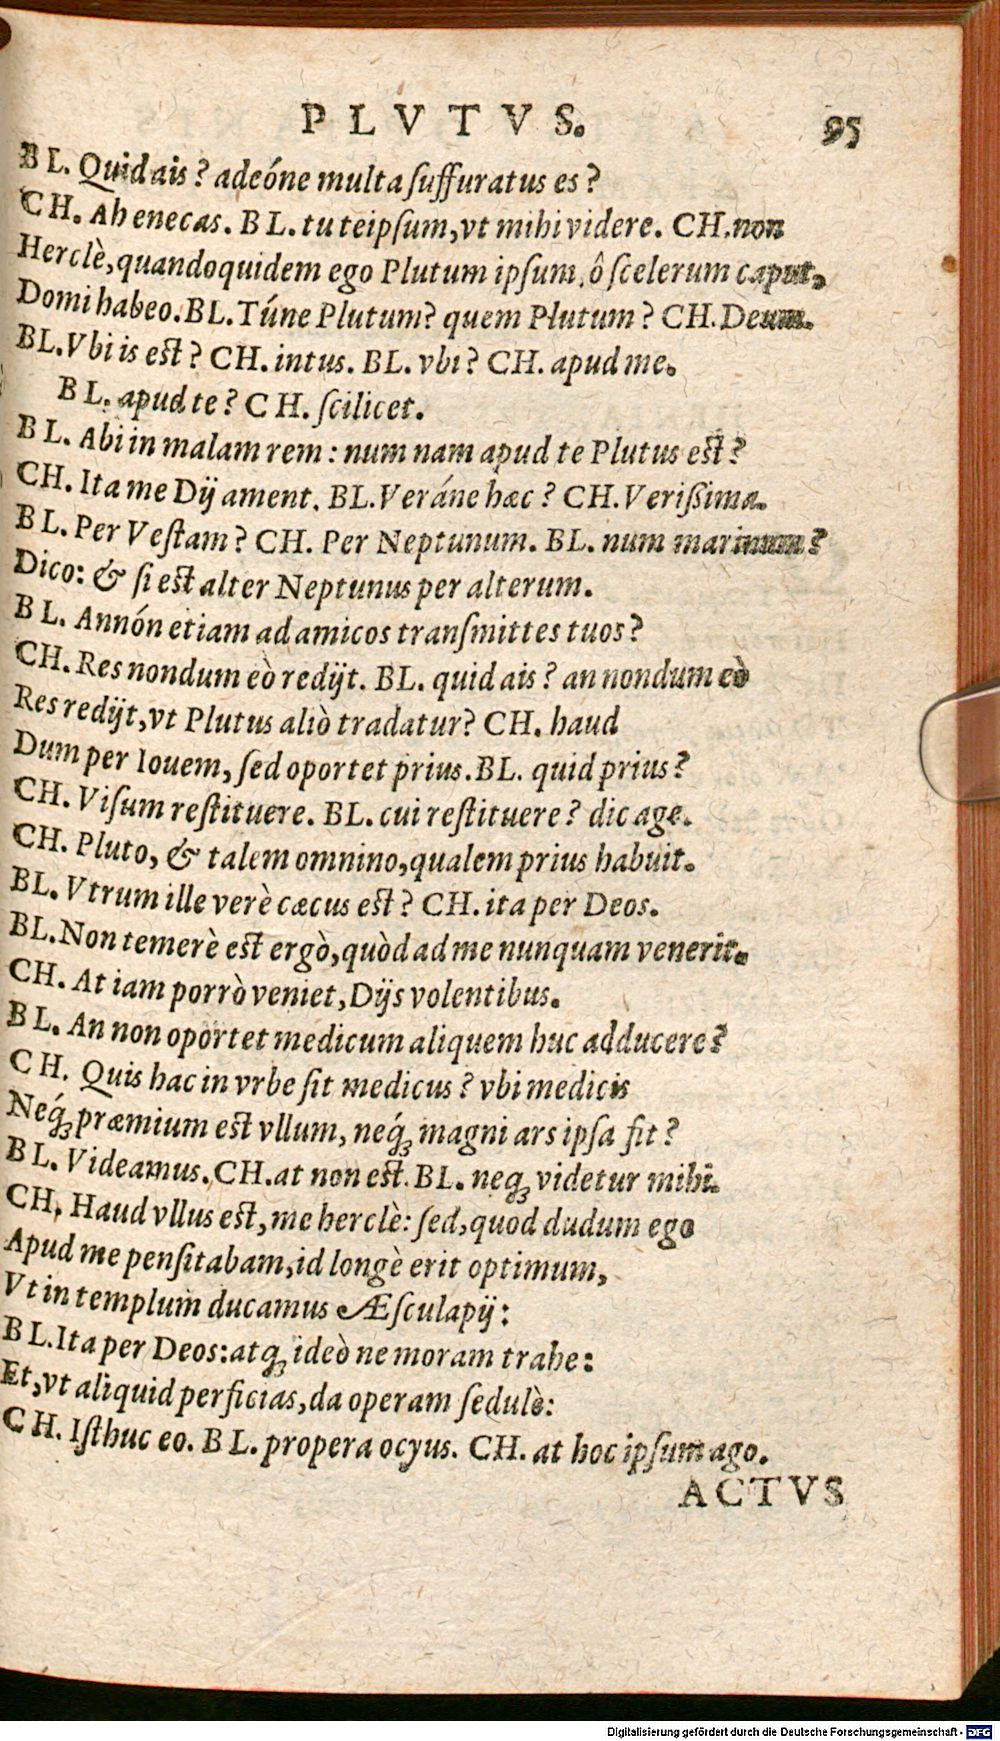 PLVTVS. 95
BL. Quid ais? adeóne multa ſuffuratus es?
CH. Ah enecas. BL. tu teipſum, vt mihi videre. CH. non
Herclè, quandoquidem ego Plutum ipſum, ô ſcelerum caput,
Domi habeo. BL. Túne Plutum? quem Plutum? CH. Deum.
BL. Vbi is est? CH. intus. BL. vbi? CH. apud me.
BL. apud te? CH. ſcilicet.
BL. Abi in malam rem: num nam apud te Plutus est?
CH. Ita me Dij ament. BL. Veráne hæc? CH. Veriſsima.
BL. Per Veſtam? CH. Per Neptunum. BL. num marinum?
Dico: & ſi est alter Neptunus per alterum.
BL. Annón etiam ad amicos tranſmittes tuos?
CH. Res nondum eò redijt. BL. quid ais? an nondum eò
Res redijt, vt Plutus aliò tradatur? CH. haud
Dum per Iouem, ſed oportet prius. BL. quid prius?
CH. Viſum reſtituere. BL. cui reſtituere? dic age.
CH. Pluto, & talem omnino, qualem prius habuit.
BL. Vtrum ille verè cæcus est? CH. ita per Deos.
BL. Non temerè est ergò, quòd ad me nunquam venerit.
CH. At iam porrò veniet, Dijs volentibus.
BL. An non oportet medicum aliquem huc adducere?
CH. Quis hac in vrbe ſit medicus? vbi medicis
Neq́ꝫ præmium est vllum, neq́ꝫ magni ars ipſa fit?
BL. Videamus. CH. at non est. BL. neqꝫ videtur mihi.
CH. Haud vllus est, me herclè: ſed, quod dudum ego
Apud me penſitabam, id longè erit optimum,
Vt in templum ducamus Æſculapij:
BL. Ita per Deos: atqꝫ ideò ne moram trahe:
Et, vt aliquid perficias, da operam ſedulò:
CH. Iſthuc eo. BL. propera ocyus. CH. at hoc ipſum ago.
ACTVS
Digitalisierung gefördert durch die Deutsche Forschungsgemeinschaft - DFG